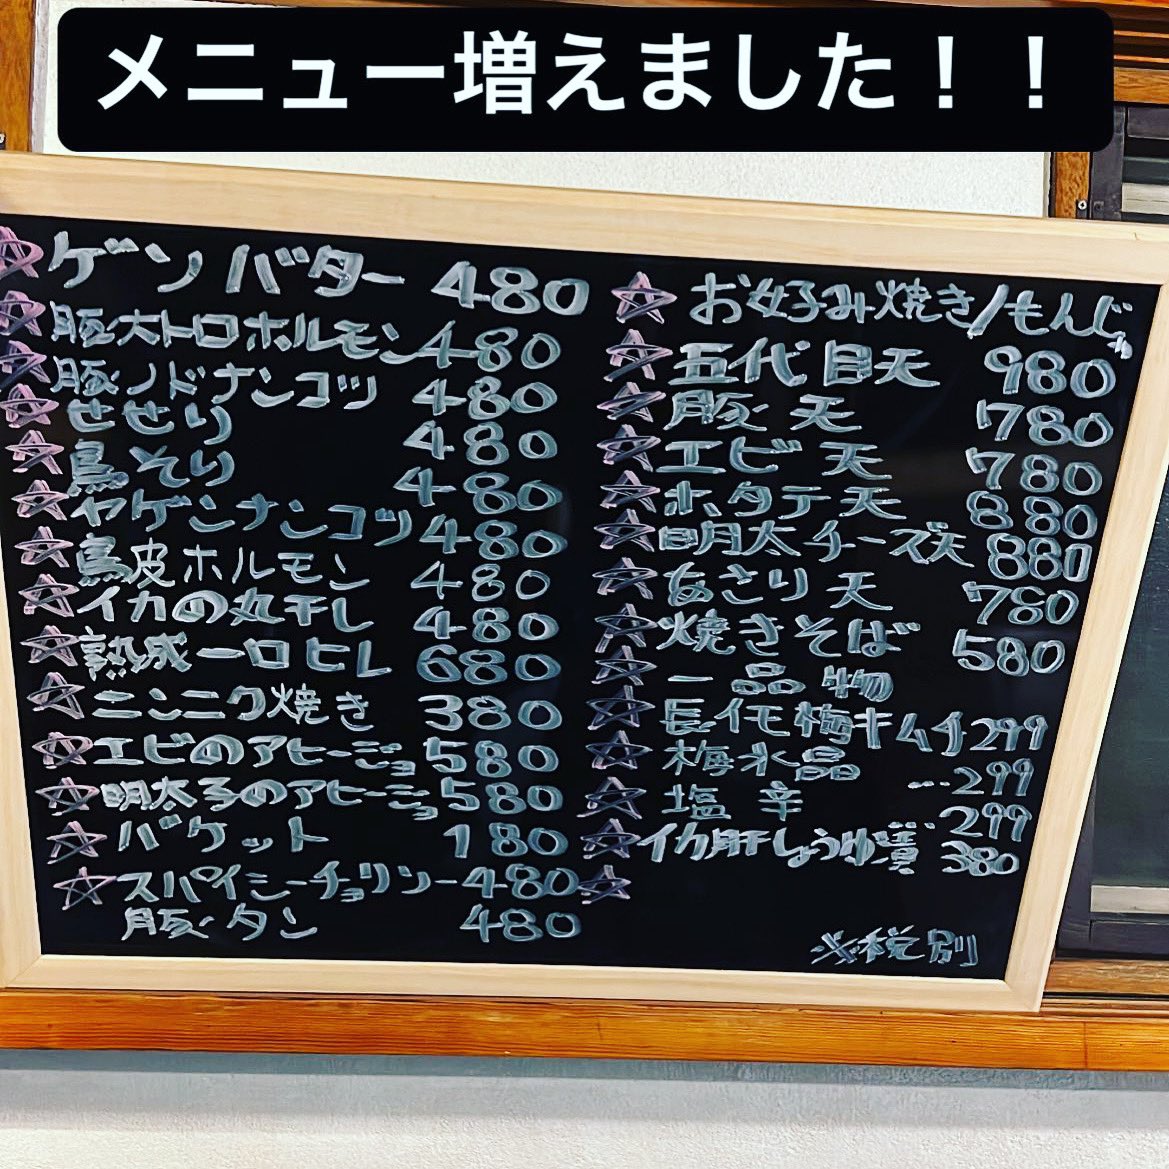 メニュー増えました！！
ゲンバター 480
豚大トロホルモン 480
豚ノドナンコツ 480
せせり 480
鳥そり 480
ヤゲンナンコツ 480
鳥皮ホルモン 480
イカの丸干し 480
熟成一口ヒレ 680
ニンニク焼き 380
エビのアヒージョ 580
明太子のアヒージョ 580
バケット 180
スパイシーチョリソー 480
豚タン 480
お好み焼き/もんじゃ
五代目天 980
豚天 780
エビ天 780
ホタテ天 880
明太チーズ天 880
あさり天 780
焼きそば 580
一品物
長イモ梅キムチ 299
梅水晶 … 299
塩辛 … 299
イカ肝しょうゆ漬 380
※税別